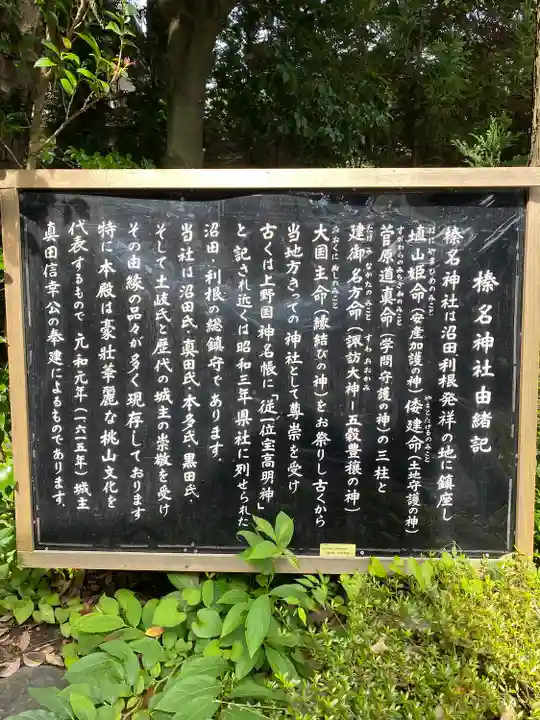 榛名神社由緒記
榛名神社は沼田、利根発祥の地に鎮座し
埴山姫命(安産加護の神)倭建命(土地守護の神)
菅原道真命(学問守護の神)の三柱と
建御名方命(諏訪大神―五穀豊穣の神)
大国主命(縁結びの神)をお祭りし古くから
当地方きっての神社として尊崇を受け
古くは上野国神名帳に「従一位宝高明神」
と記され近くは昭和三年県社に列せられた
沼田・利根の総鎮守であります。
当社は沼田氏、真田氏、本多氏、黒田氏、
そして土岐氏と歴代の城主の崇敬を受け
その由縁の品々が多く現存しております
特に本殿は豪壮華麗な桃山文化を
代表するもので、元和元年(一六一五年)城主
真田信幸公の奉建によるものであります。